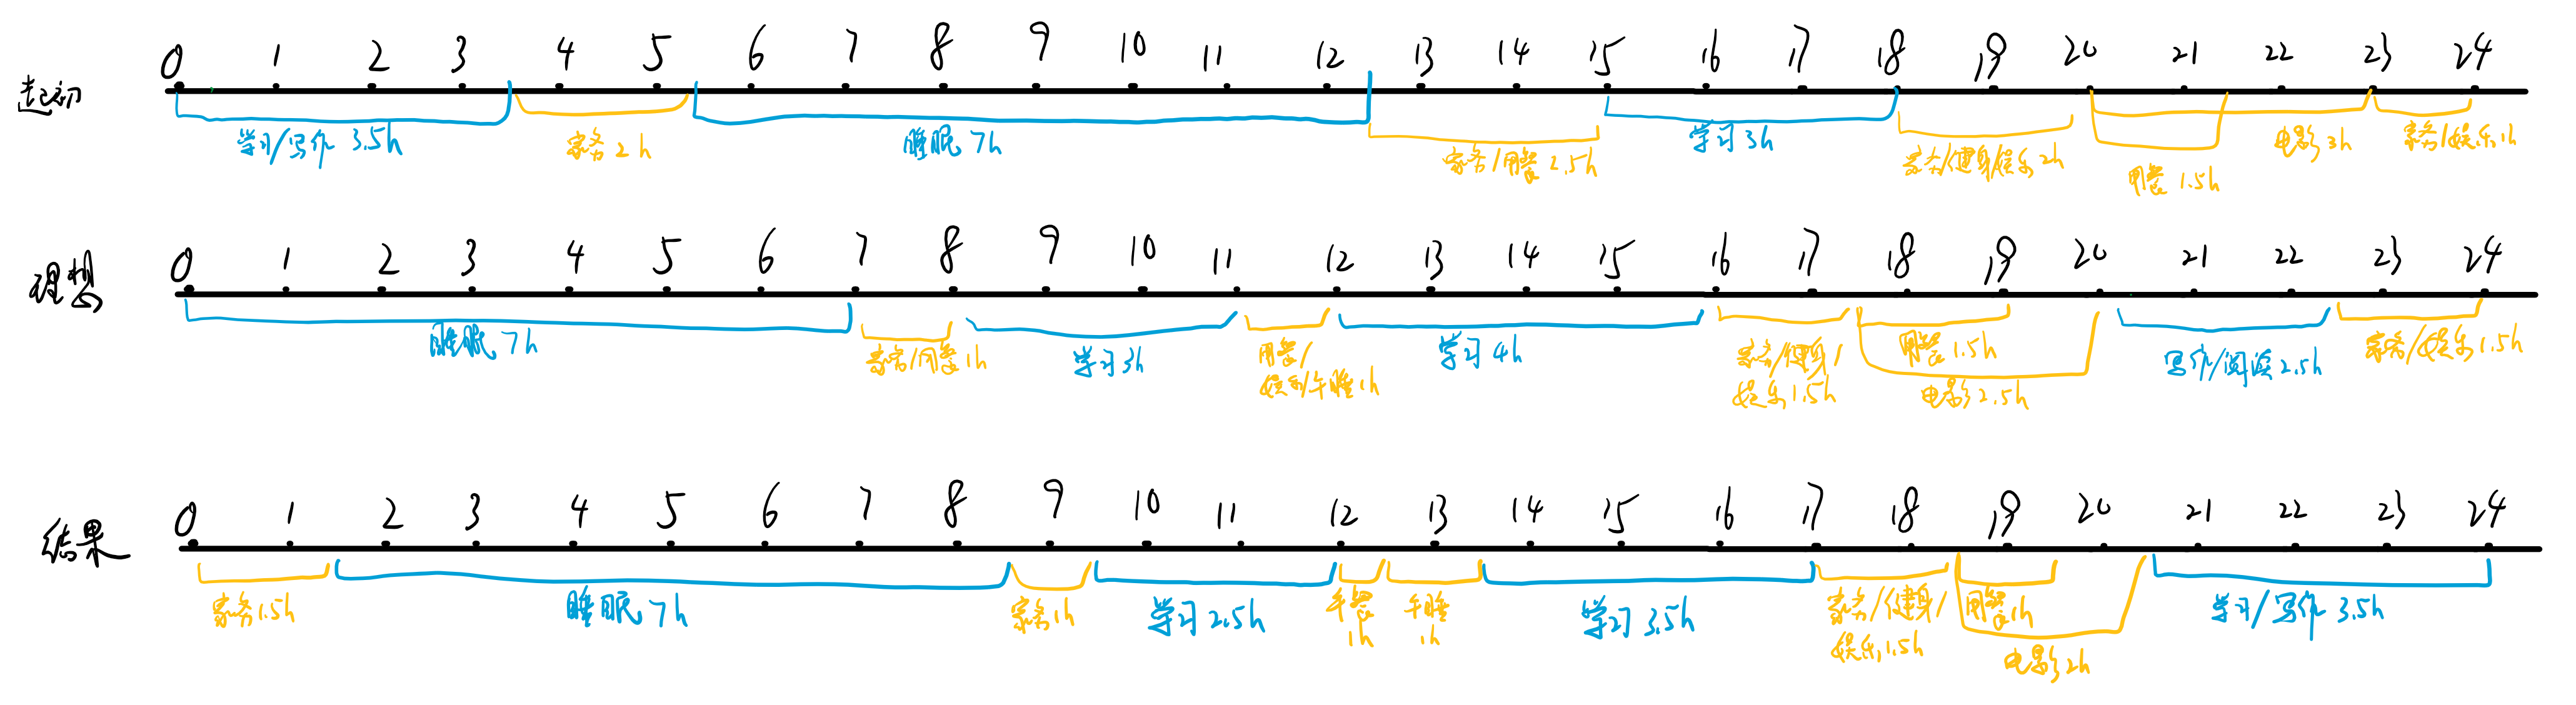 0 1 2 3 4 5 6 7 8 9 10 11 12 13 14 15 16 17 18 19 20 21 22 23 24
起初
学习/写作 3.5h 家务 2h 睡眠 7h 家务/用餐 2.5h 学习 3h 家务/健身/娱乐 2h 用餐 1.5h 电影 3h 家务/娱乐 1h
0 1 2 3 4 5 6 7 8 9 10 11 12 13 14 15 16 17 18 19 20 21 22 23 24
理想
睡眠 7h 家务/用餐 1h 学习 3h 用餐/
娱乐/午睡 1h 学习 4h 家务/健身/
娱乐 1.5h 用餐 1.5h
电影 2.5h 写作/阅读 2.5h 家务/娱乐 1.5h
0 1 2 3 4 5 6 7 8 9 10 11 12 13 14 15 16 17 18 19 20 21 22 23 24
结果
家务 1.5h 睡眠 7h 家务 1h 学习 2.5h 午餐
1h 午睡
1h 学习 3.5h 家务/健身/
娱乐 1.5h 用餐 1h
电影 2h 学习/写作 3.5h